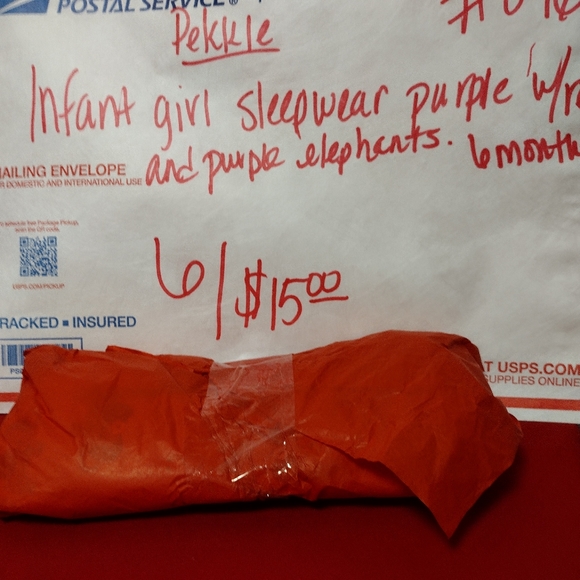 POSTAL SERVICE®
Pekkle
Infant girl sleepwear purple
and purple elephants. 6 month
MAILING ENVELOPE
FOR DOMESTIC AND INTERNATIONAL USE
schedule free Package Pickup,
scan the QR code.
USPS.COM/PICKUP
6/$15.00
TRACKED ■ INSURED
AT USPS.COM
SUPPLIES ONLINE